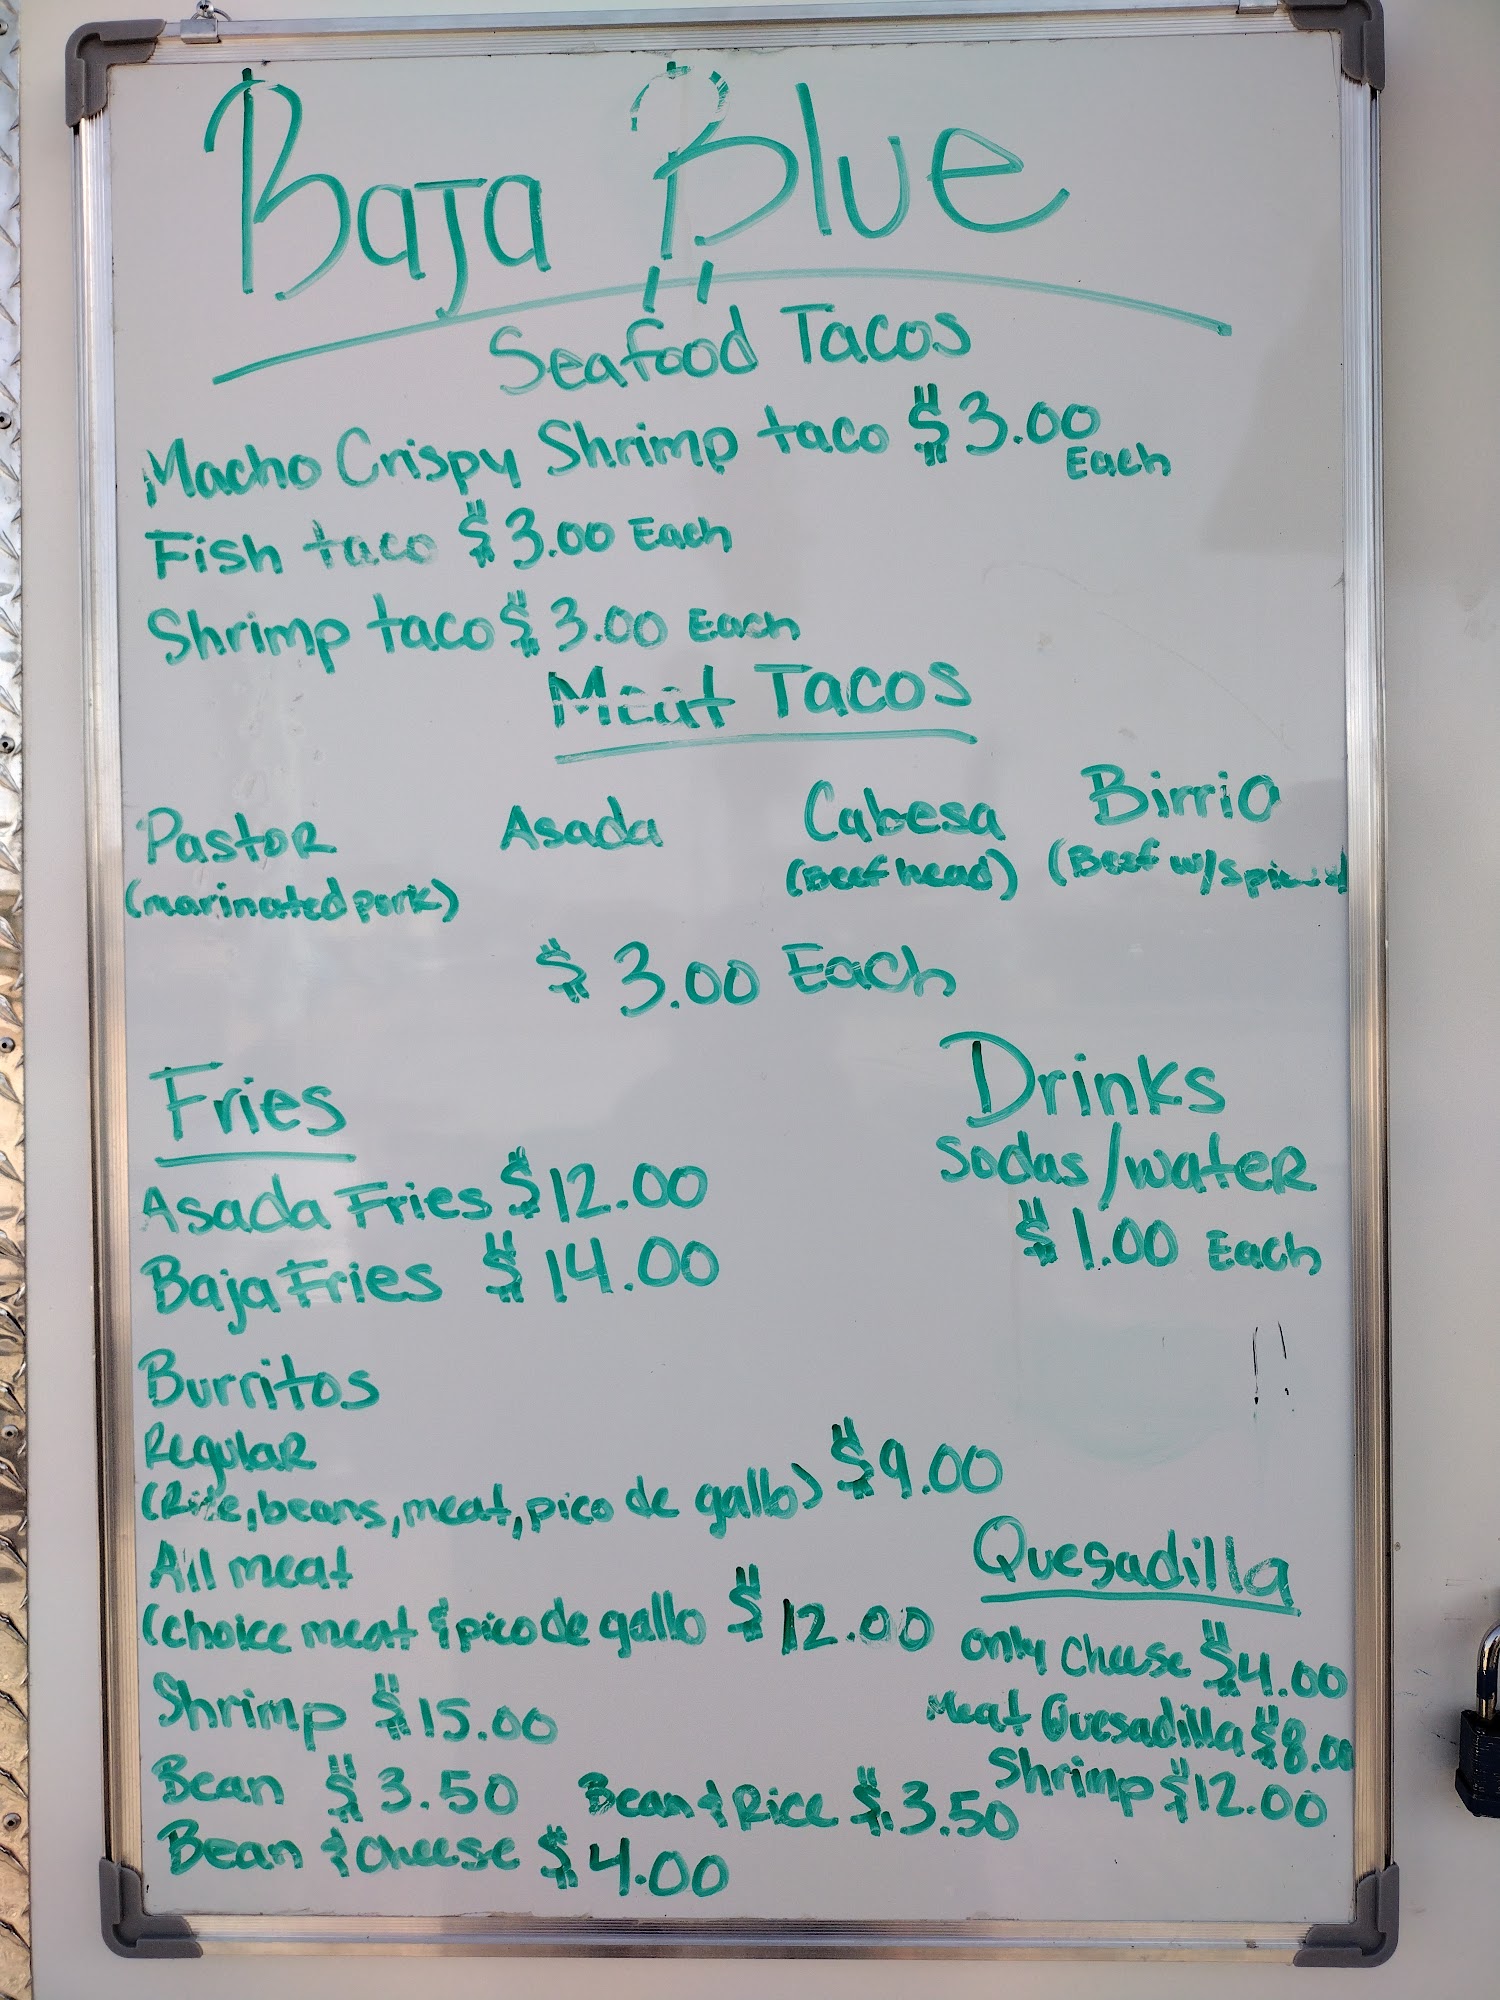 Baja Blue
Seafood Tacos
Macho Crispy Shrimp taco $3.00
Each
Fish taco $3.00 Each
Shrimp taco $3.00 Each
Meat Tacos
Pastor Asada Cabesa Birria
(marinated pork) (Beef head) (Beef w/
$3.00 Each
Fries
Asada Fries $12.00
Baja Fries $14.00
Drinks
Sodas/water
$1.00 Each
Burritos
Regular
(Rice, beans, meat, pico de gallo) $9.00
All meat
(choice meat & pico de gallo $12.00
Shrimp $15.00
Bean $3.50 Bean & Rice $3.50
Bean & Cheese $4.00
Quesadilla
only Cheese $4.00
Meat Quesadilla $8.00
Shrimp $12.00